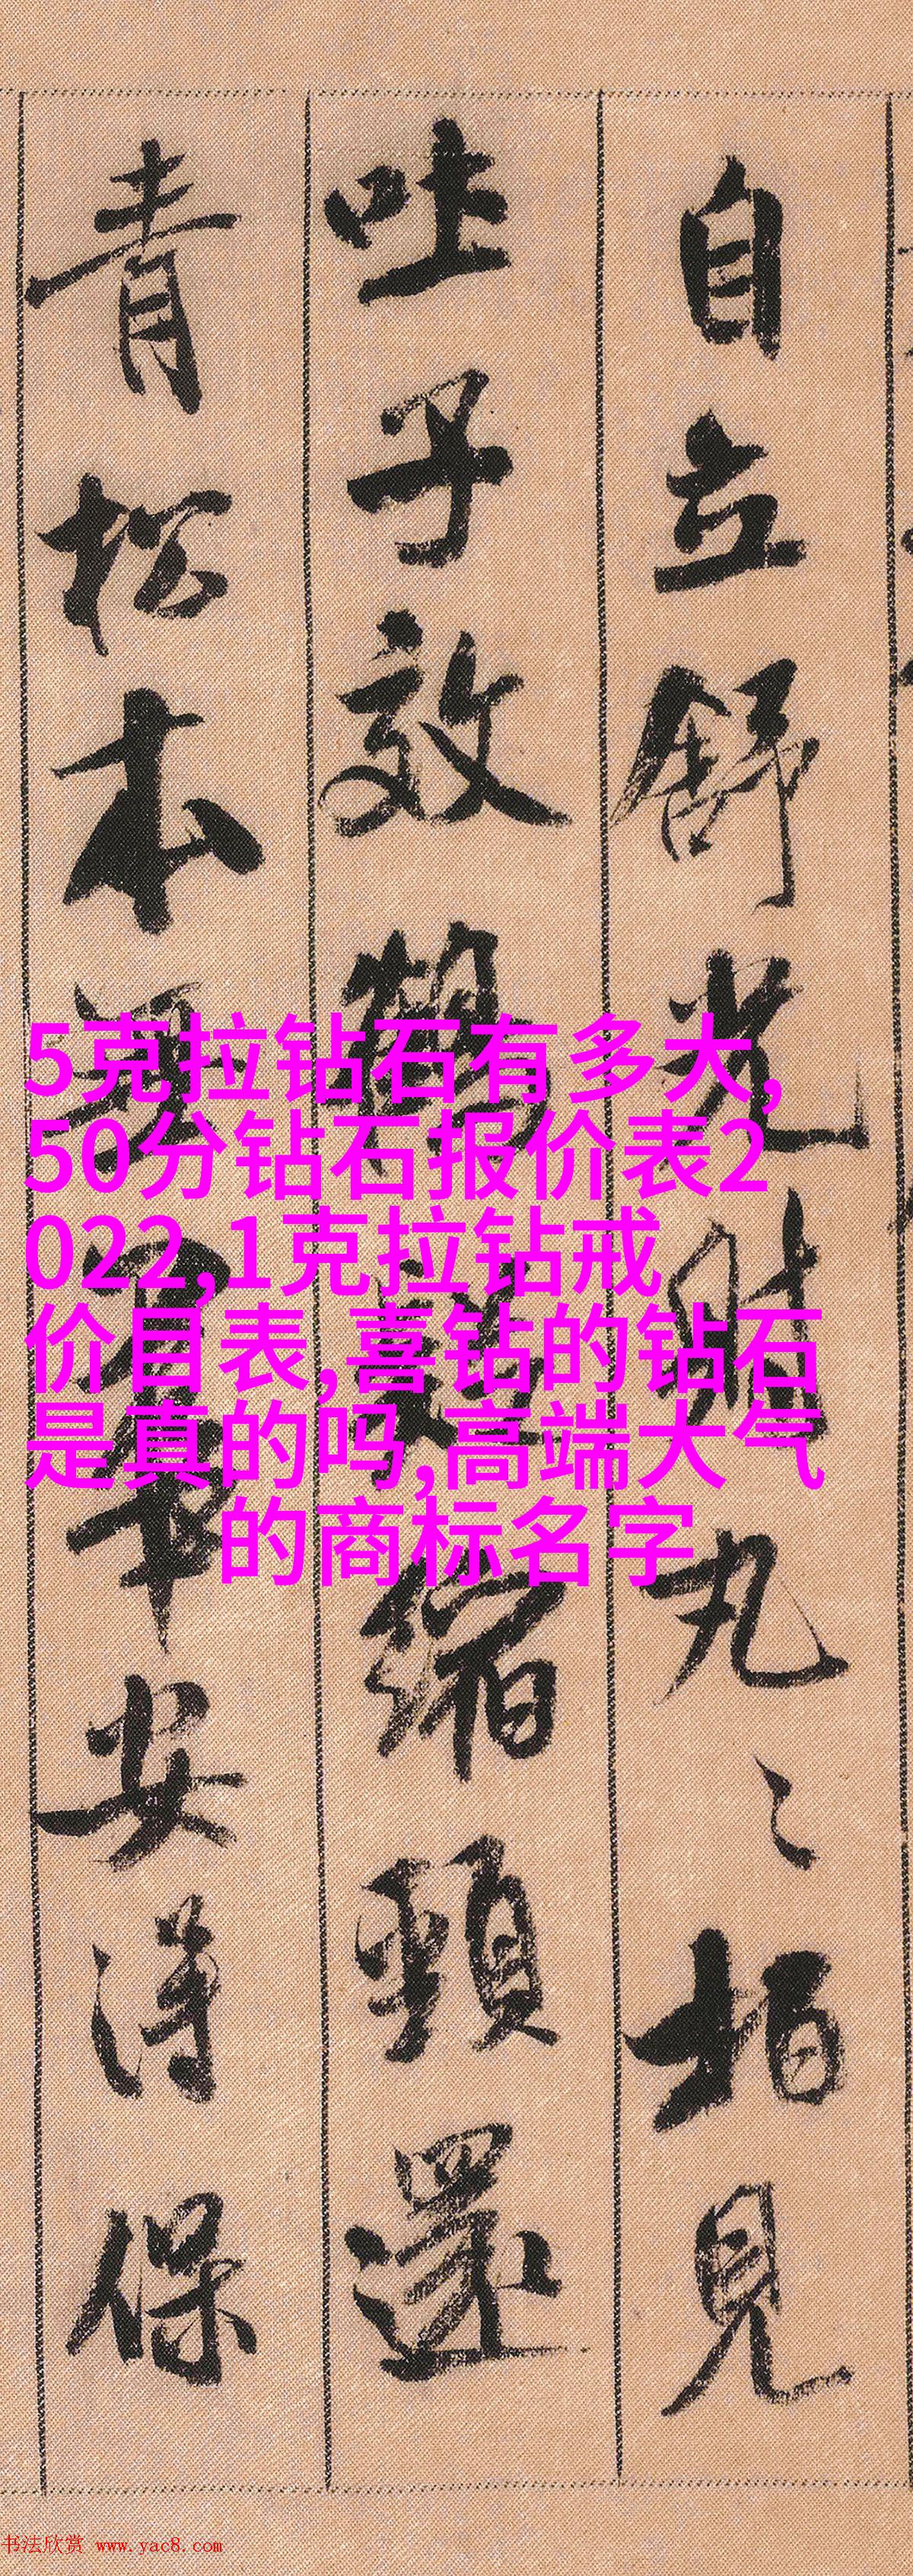 自立舒光射丸〻柏見
吐子效鶴疑縮頸還
青松本無華安得保
5克拉钻石有多大,
50分钻石报价表2
022,1克拉钻戒
价目表,喜钻的钻石
是真的吗,高端大气
的商标名字
书法欣赏 www.yac8.com